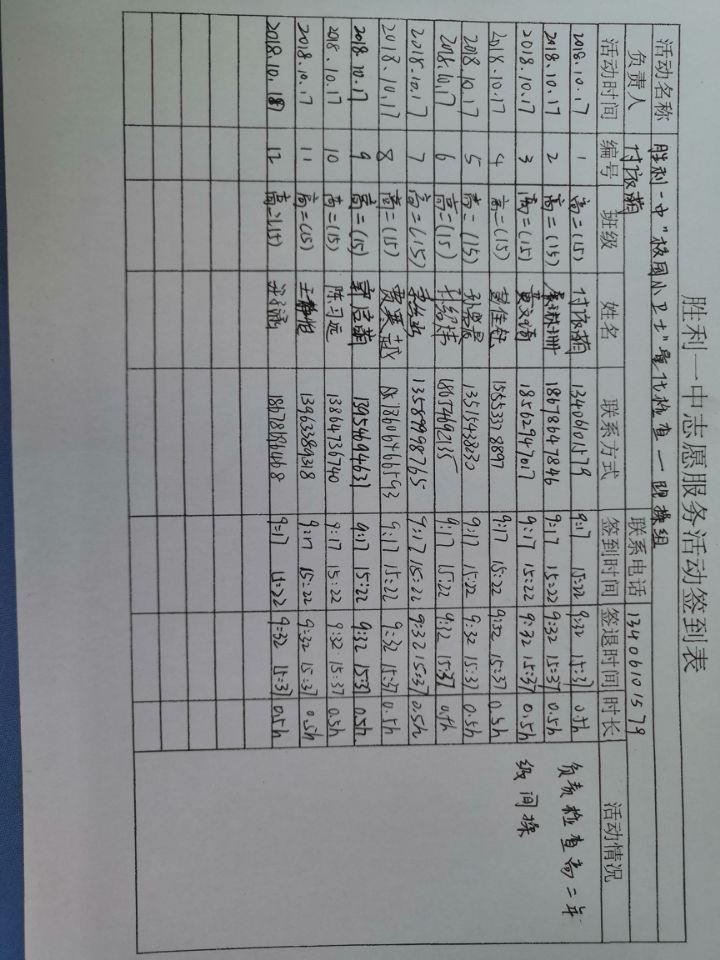 胜利一中志愿服务活动签到表
活动名称 胜利一中"校园小卫士"量化检查—跑操组
负责人 付依萌 联系电话 13406101579
活动时间 编号 班级 姓名 联系方式 签到时间 签退时间 时长 活动情况
2018.10.17 1 高二(15) 付依萌 13406101579 9:17 15:22 9:32 15:37 0.5h 负责检查高二年
2018.10.17 2 高二(15) 18678647846 9:17 15:22 9:32 15:37 0.5h 级间操
2018.10.17 3 高二(15) 18562947017 9:17 15:22 9:32 15:37 0.5h
2018.10.17 4 高二(15) 9:17 15:22 9:32 15:37 0.5h
2018.10.17 5 高二(15) 13515428030 9:17 15:22 9:32 15:37 0.5h
2018.10.17 6 高二(15) 18654692135 9:17 15:22 9:32 15:37 0.5h
2018.10.17 7 高二(15) 13589998765 9:17 15:22 9:32 15:37 0.5h
2018.10.17 8 高二(15) 贾英越 9:17 15:22 9:32 15:37 0.5h
2018.10.17 9 高二(15) 13954694631 9:17 15:22 9:32 15:37 0.5h
2018.10.17 10 高二(15) 陈习远 13864736740 9:17 15:22 9:32 15:37 0.5h
2018.10.17 11 高二(15) 王静怡 13963389318 9:17 15:22 9:32 15:37 0.5h
2018.10.18 12 高二(15) 9:17 15:22 9:32 15:37 0.5h